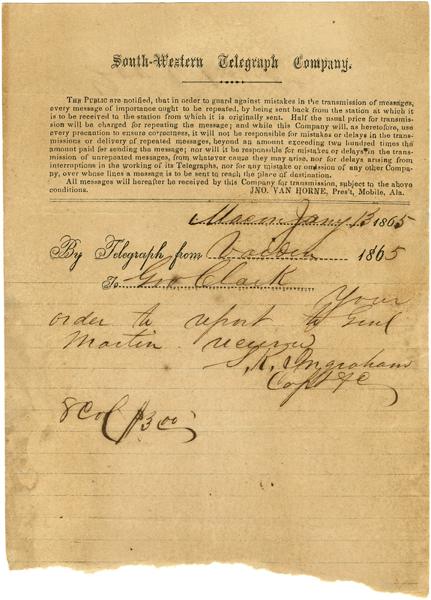 South-Western Telegraph Company.
THE PUBLIC are notified, that in order to guard against mistakes in the transmission of messages,
every message of importance ought to be repeated, by being sent back from the station at which it
is to be received to the station from which it is originally sent. Half the usual price for transmis-
sion will be charged for repeating the message; and while this Company will, as heretofore, use
every precaution to ensure correctness, it will not be responsible for mistakes or delays in the trans-
missions or delivery of repeated messages, beyond an amount exceeding two hundred times the
amount paid for sending the message; nor will it be responsible for mistakes or delays in the trans-
mission of unrepeated messages, from whatever cause they may arise, nor for delays arising from
interruptions in the working of its Telegraphs, nor for any mistake or omission of any other Compa-
ny, over whose lines a message is to be sent to reach the place of destination.
All messages will hereafter be received by this Company for transmission, subject to the above
conditions.
JNO. VAN HORNE, Pres't, Mobile, Ala.
Macon Jany 13 1865
By Telegraph from Vaiden 1865
To Gov Clark
Your
order to report to Genl
Martin received
S. R. Ingraham
Capt &C
8 Col $3 00